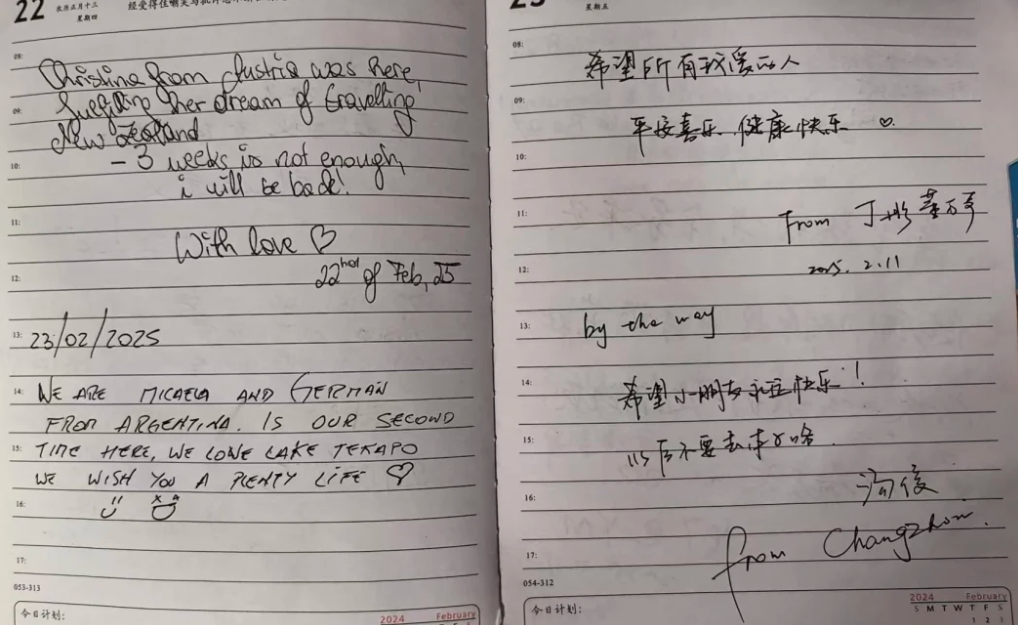 22
农历正月十三
星期四
08:
Christina from Austria was here,
09:
fulfilling her dream of travelling
New Zealand
10:
- 3 weeks is not enough,
i will be back!
11:
With love ♡
12:
22nd of Feb, 25
13:
23/02/2025
14:
WE ARE MICAELA AND GERMAN
FROM ARGENTINA. IS OUR SECOND
15:
TIME HERE, WE LOVE LAKE TEKAPO
WE WISH YOU A PLENTY LIFE ♡
16:
17:
053-313
今日计划:
2024 February
星期五
08:
希望所有我爱的人
09:
平安喜乐 健康快乐 ♡
10:
11:
From 丁
12:
2025. 2. 11
13:
by the way
14:
希望小朋友永远快乐!
15:
以后不要去
16:
17:
from Changzhou.
054-312
今日计划:
2024 February
S M T W T F S
1 2 3